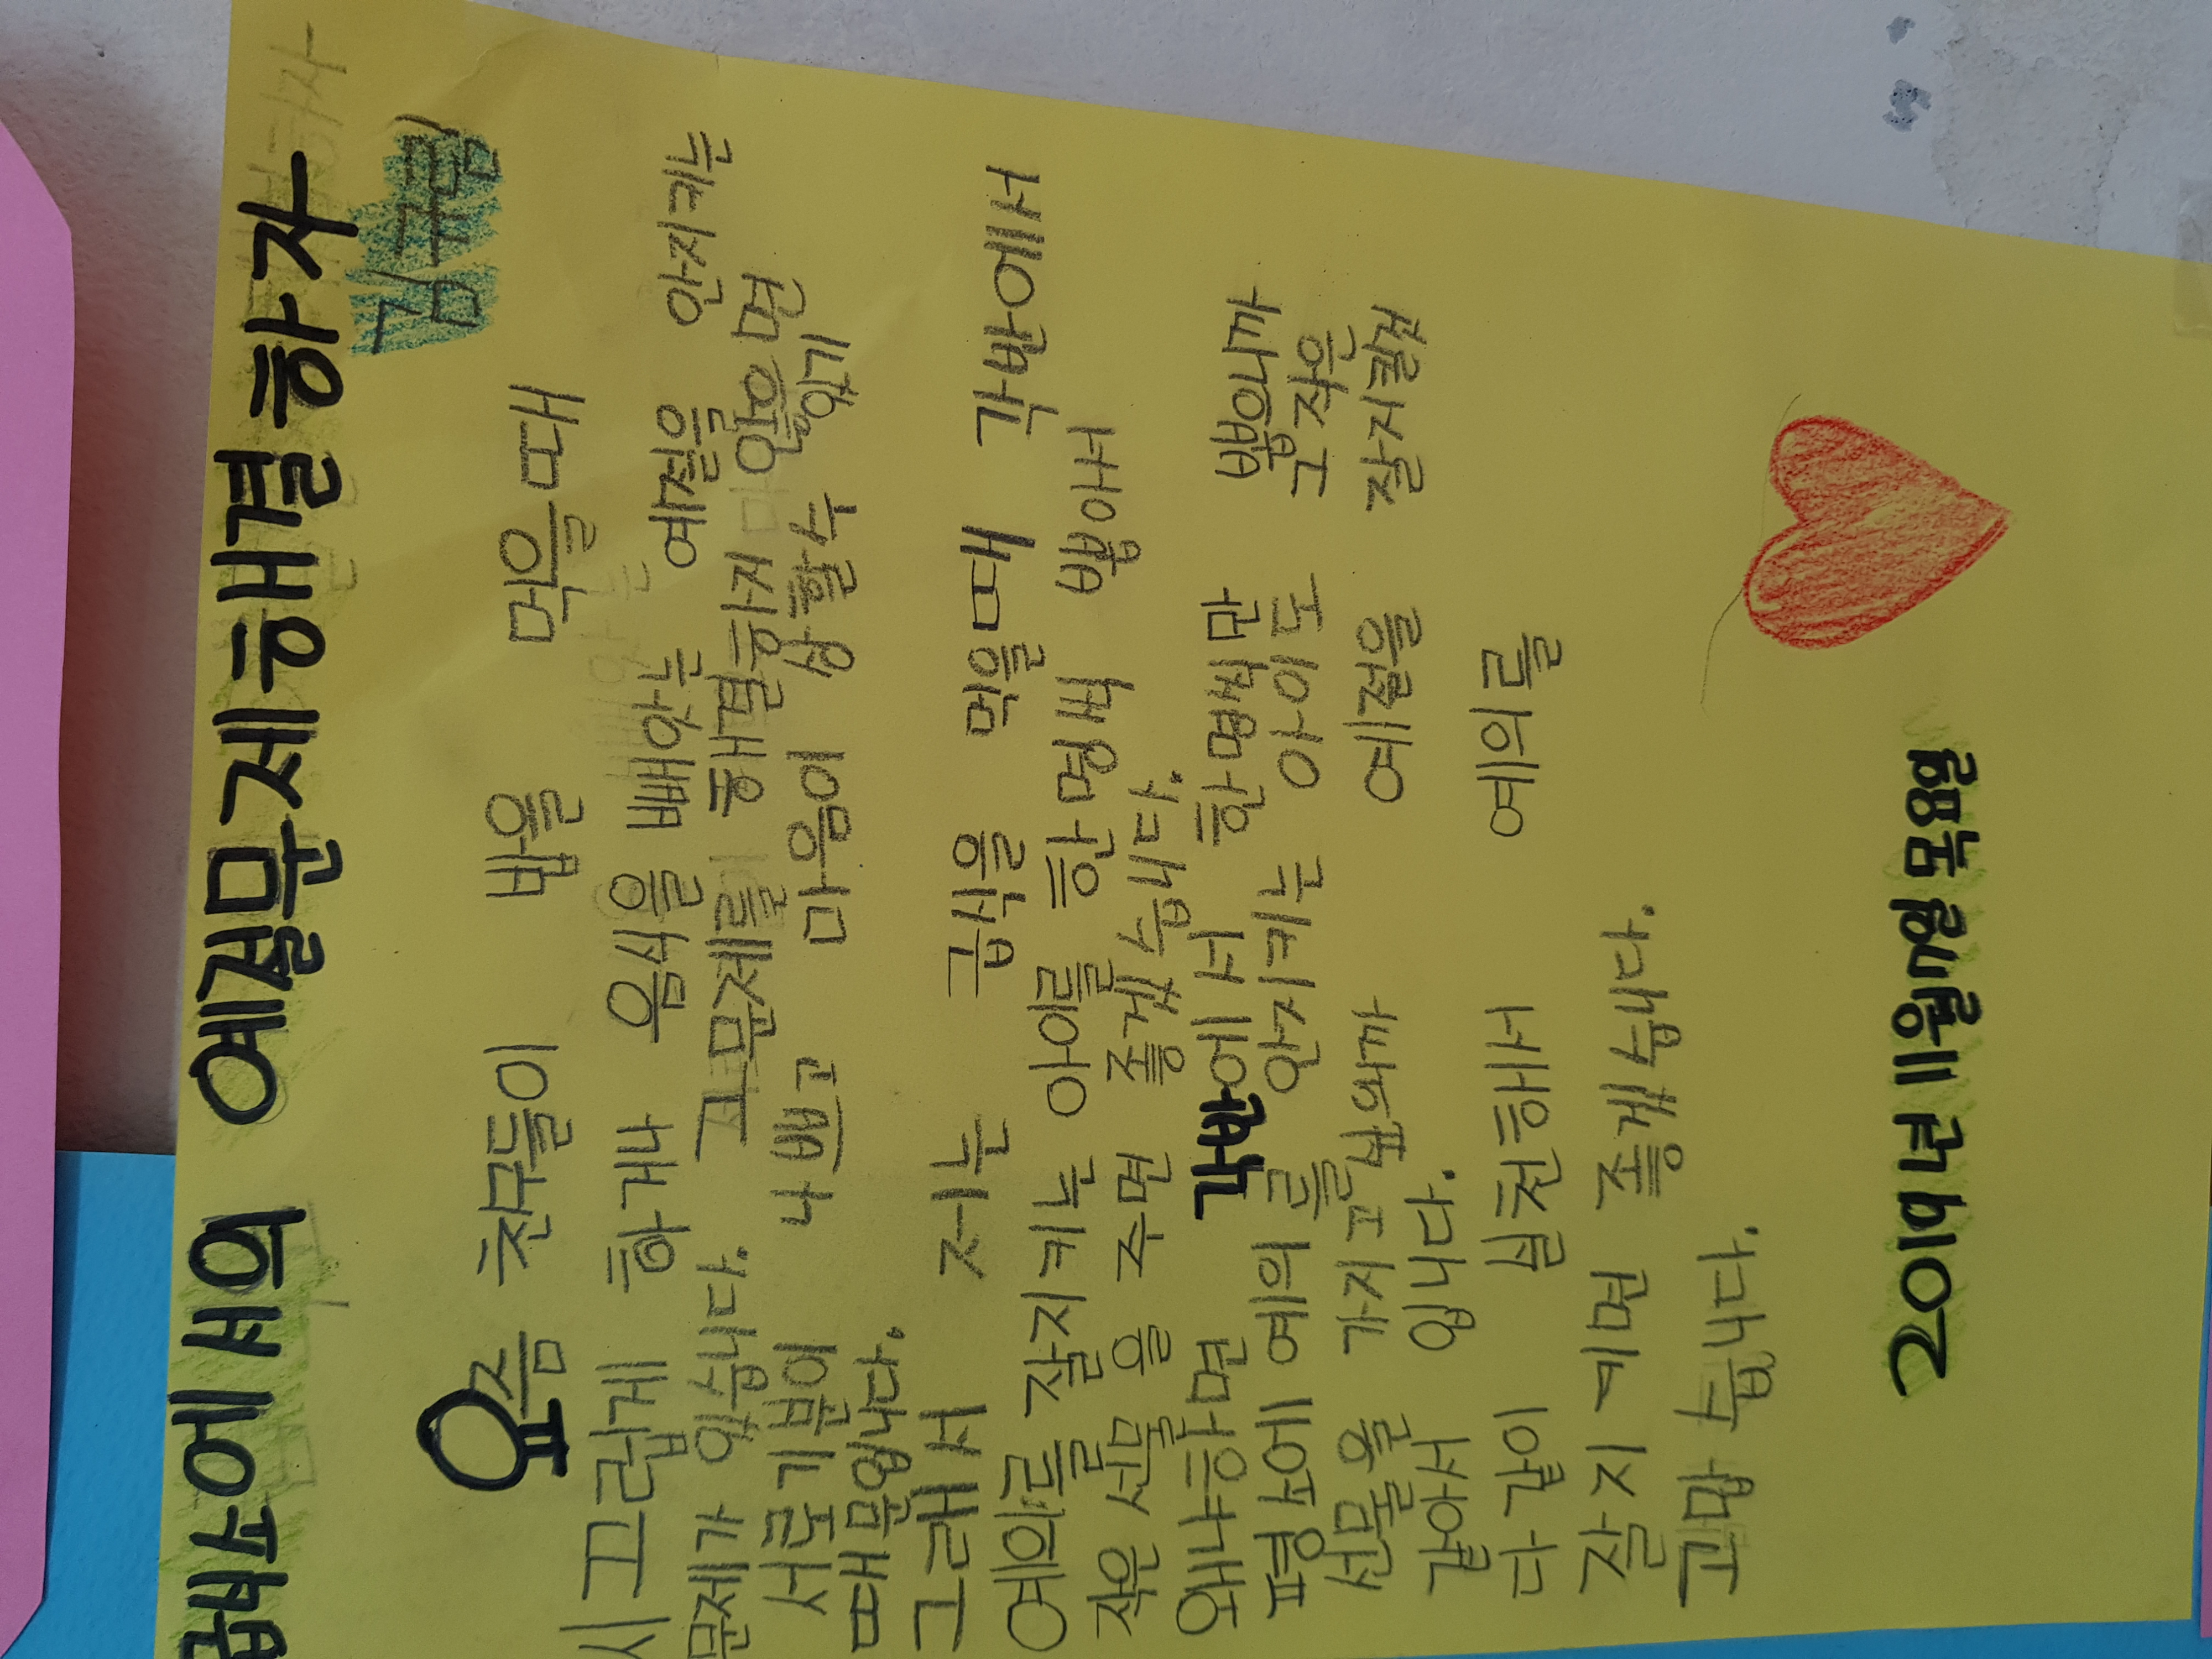 급식소에서의 예절문제해결하자
김규림
요즘 친구들이 밥을 먹을때
시끄럽게 하거나 음식을 빼았는 예절을 안지키는
문제가 있습니다. 그문제를 해결하지 안을하면
서로기분이 나쁘고 마음이 상할수있기
때문입니다.
그래서 저는 급식을 먹을때 각반에서
예의를 잘지키는 아이를 한명씩 뽑아서
작은 선물을 주면 좋겠습니다.
왜나하면 각반에서 한명씩만 뽑으니까
평소에 예의를 안지키는 아이도 그작은
선물을 가지고싶으니까 예절을 잘지킬것
같아서 입니다.
다같이 실천해서 예의를
잘지키면 좋겠습니다.
고맙습니다.
2019년 11월7일 목요일